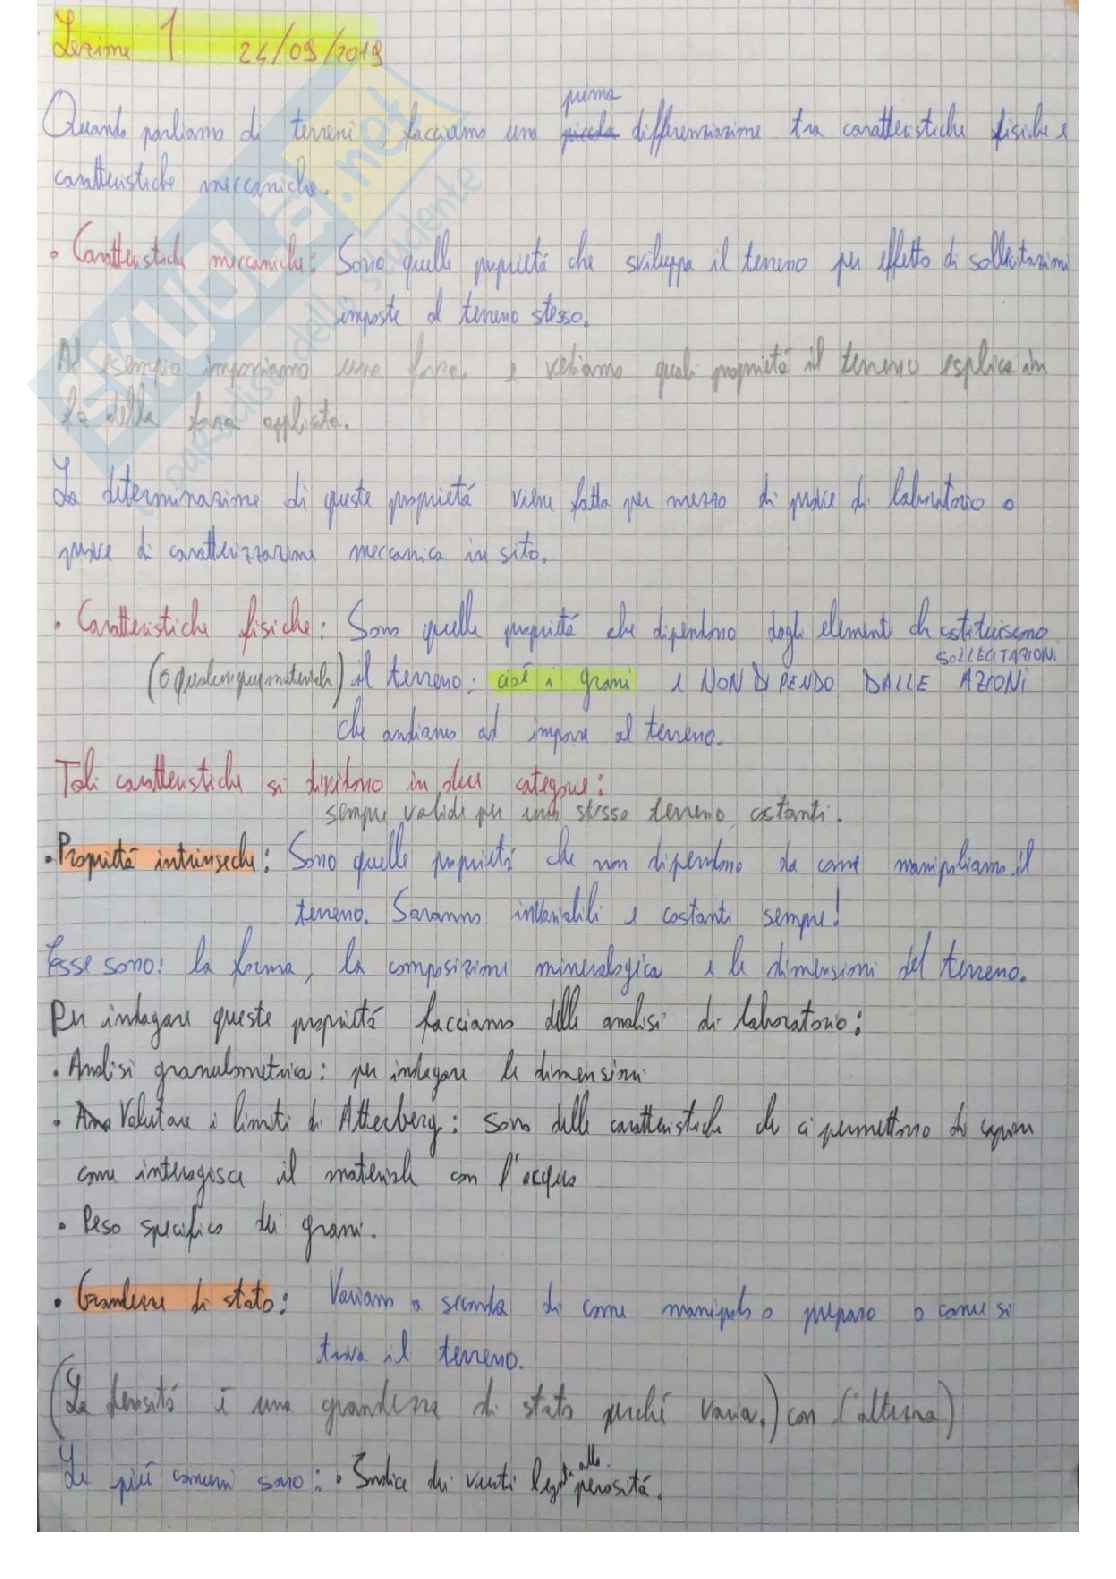 Lezione 1 24/09/2019
prima
Quando parliamo di terreni, facciamo una piccola differenziazione tra caratteristiche fisiche e
caratteristiche meccaniche.
• Caratteristiche meccaniche: Sono quelle proprietà che sviluppa il terreno per effetto di sollecitazioni
imposte al terreno stesso.
Ad esempio imponiamo una forza e vediamo quali proprietà il terreno esplica in
là della forza applicata.
La determinazione di queste proprietà viene fatta per mezzo di prove di laboratorio o
prove di caratterizzazione meccanica in sito.
• Caratteristiche fisiche: Sono quelle proprietà che dipendono dagli elementi ch costituiscono
SOLLECITAZIONI
(o qualunque materiale) il terreno: cioè i grani e NON DIPENDO DALLE AZIONI
che andiamo ad imporre al terreno.
Tali caratteristiche si dividono in due categorie:
sempre valide per uno stesso terreno, costanti.
• Proprietà intrinseche: Sono quelle proprietà che non dipendono da come manipoliamo il
terreno. Saranno invariabili e costanti sempre!
Esse sono: la forma, la composizione mineralogica e le dimensioni del terreno.
Per indagare queste proprietà facciamo delle analisi di laboratorio:
• Analisi granulometrica: per indagare le dimensioni
• Valutare i limiti di Atterberg: Sono delle caratteristiche che ci permettono di capire
come interagisce il materiale con l'acqua
• Peso specifico dei grani.
• Grandezze di stato: Variano a seconda di come manipolo o preparo o come si
trova il terreno.
(La densità è una grandezza di stato perché varia.) con l'altezza)
Le più comuni sono: • Indice dei vuoti legato alla porosità.
SKUOLA.net
paradiso dello studente